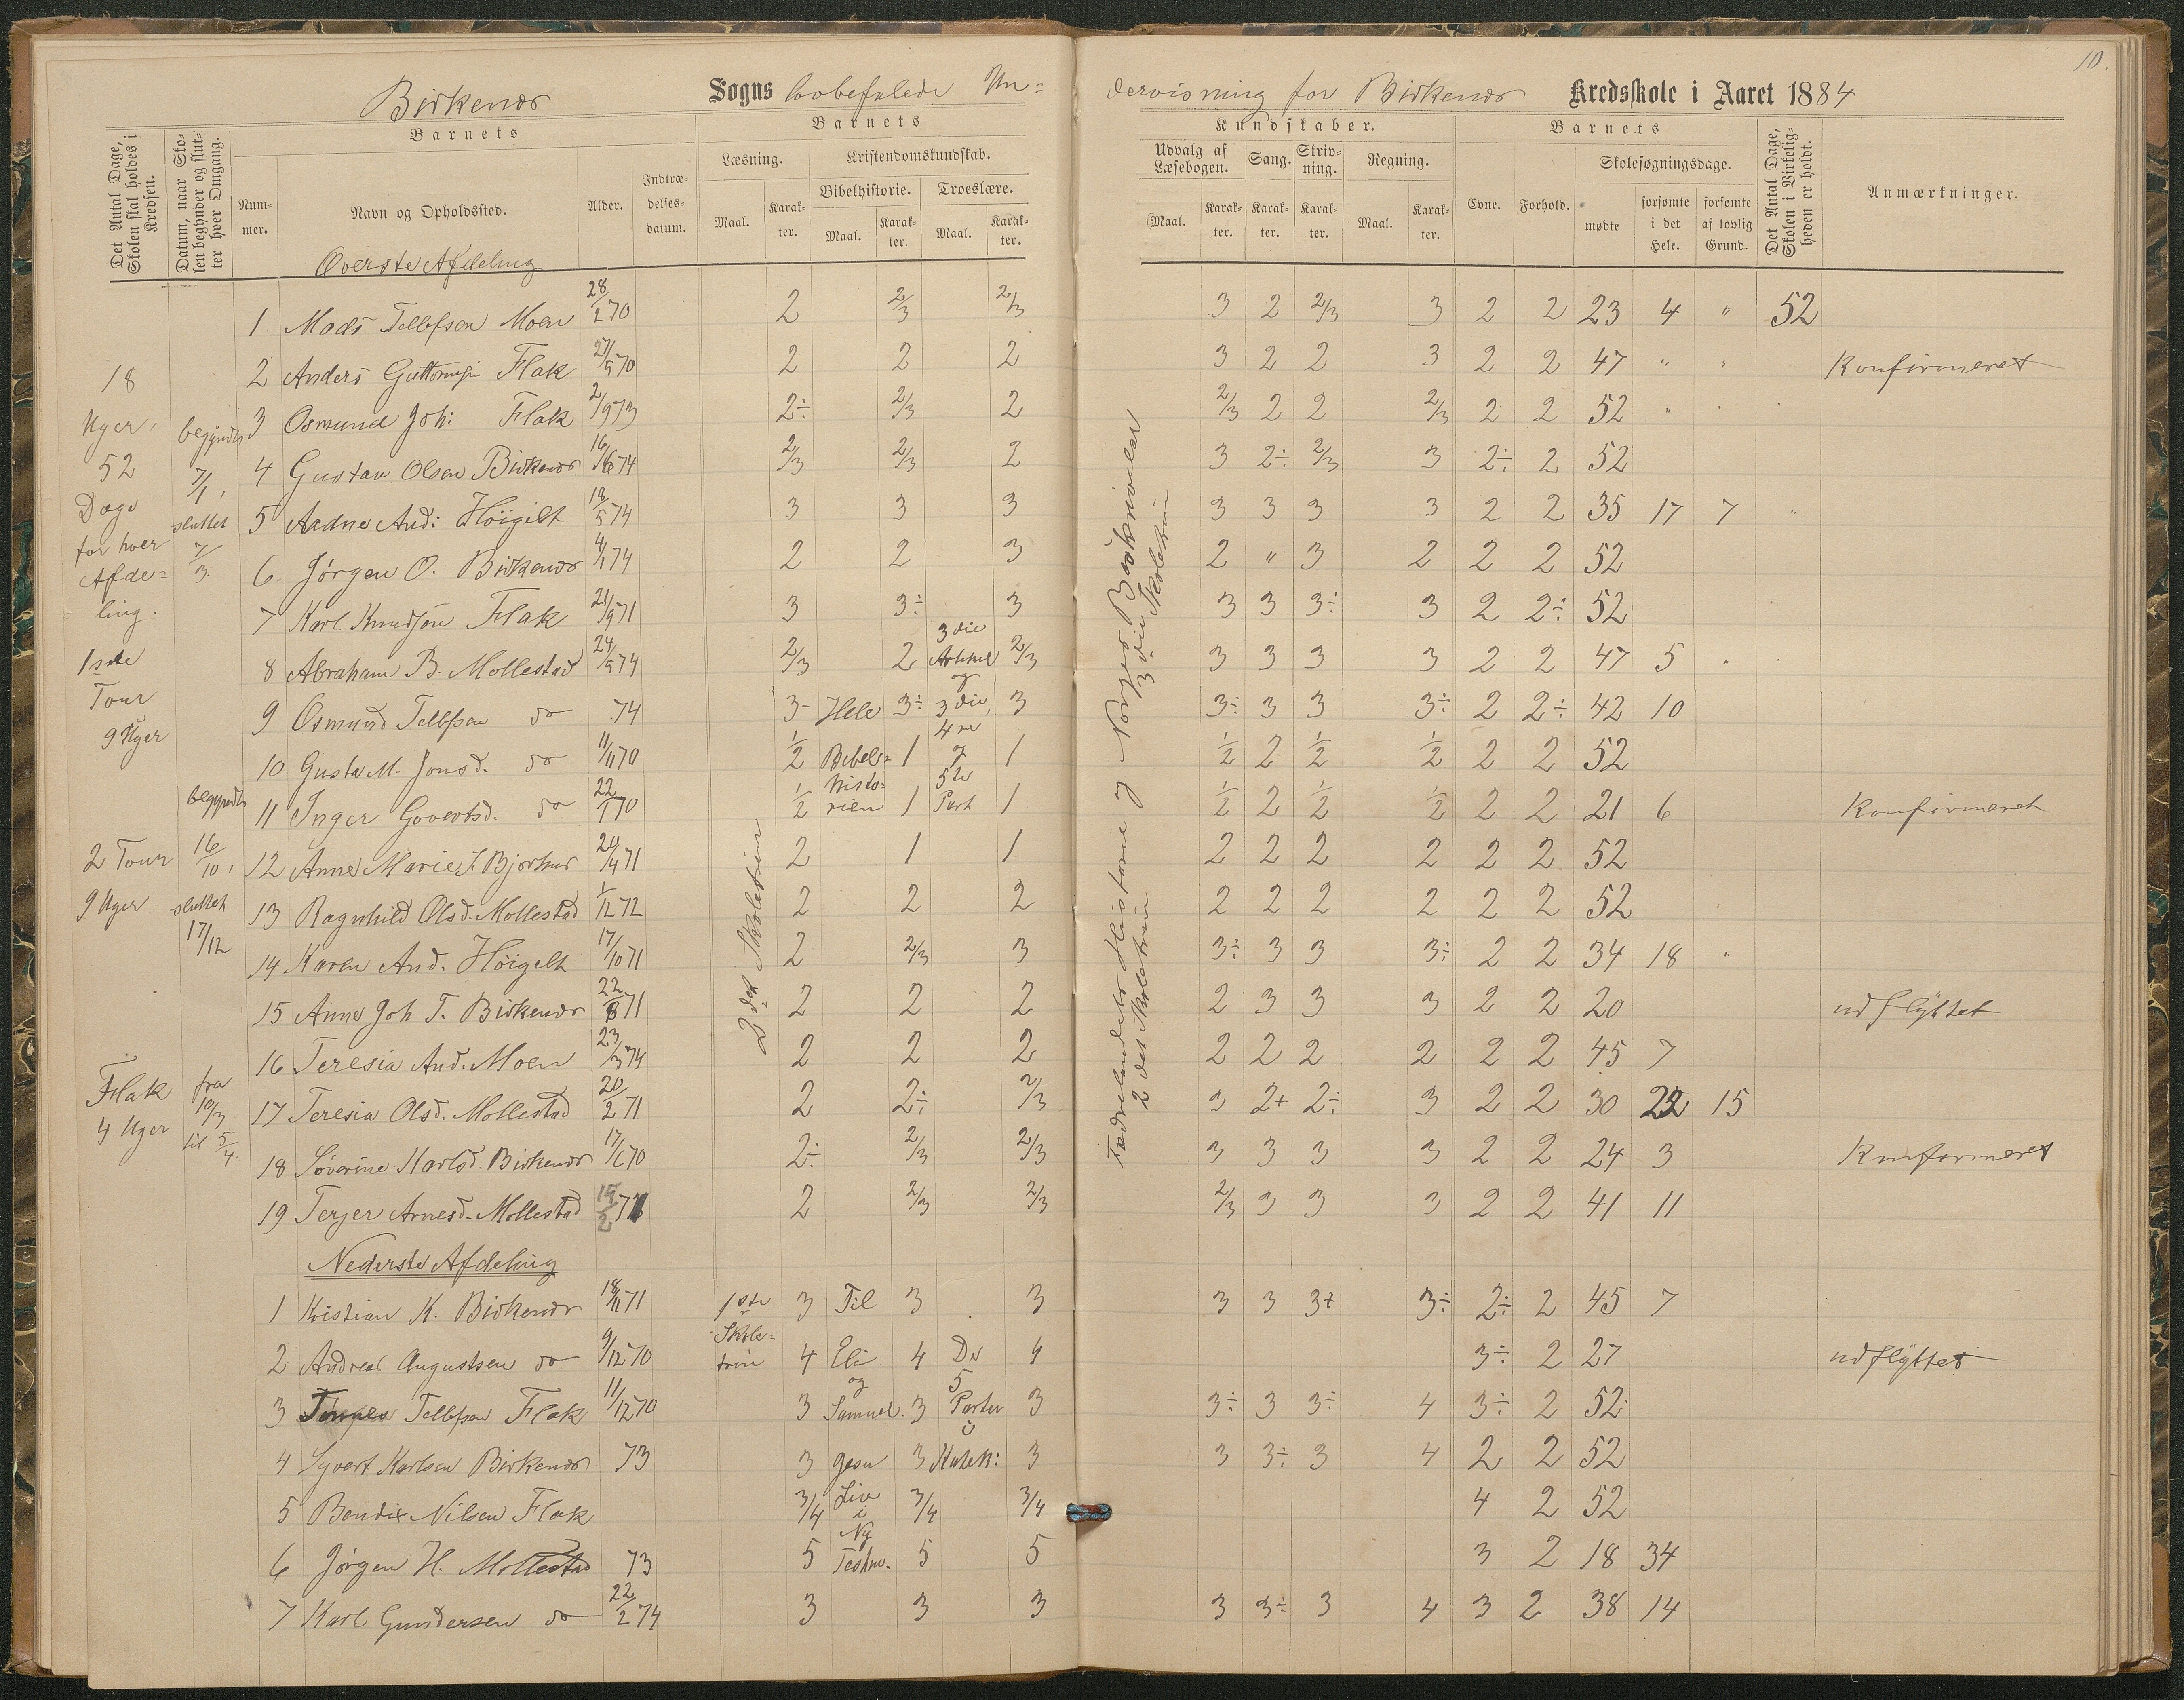 10.
Birkenes Sogns lovbefalede Un=
dervisning for Birkenes Kredsskole i Aaret 1884
Det Antal Dage, Skolen skal holdes i Kredsen.
Datum, naar Skolen begynder og slutter hver Omgang.
Barnets
Nummer.
Navn og Opholdssted.
Alder.
Indtrædelsesdatum.
Barnets
Læsning.
Maal.
Karakter.
Kristendomskundskab.
Bibelhistorie.
Maal.
Karakter.
Troeslære.
Maal.
Karakter.
Kundskaber.
Udvalg af Læsebogen.
Maal.
Karakter.
Sang.
Karakter.
Skrivning.
Karakter.
Regning.
Maal.
Karakter.
Barnets
Evne.
Forhold.
Skolesøgningsdage.
mødte
forsømte i det Hele.
forsømte af lovlig Grund.
Det Antal Dage, Skolen i Virkeligheden er holdt.
Anmærkninger.
Øverste Afdeling
1 Mads Tellefsen Moen 28/2 70 2 2/3 2/3 3 2 2/3 3 2 2 23 4 " 52
2 Anders Guttormsen Flak 27/5 70 2 2 2 3 2 2 3 2 2 47 " " Konfirmeret
3 Osmund Joh: Flak 2/9 73 2÷ 2/3 2 2/3 2 2 2/3 2 2 52 "
4 Gustav Olsen Birkenes 16/6 74 2/3 2/3 2 3 2÷ 2/3 3 2÷ 2 52
5 Aadne And: Höigilt 18/5 74 3 3 3 3 3 3 3 2 2 35 17 7 "
6 Jörgen O. Birkenes 4/1 74 2 2 3 2 " 3 2 2 2 52
7 Karl Knudsen Flak 21/9 71 3 3÷ 3 3 3 3÷ 3 2 2÷ 52
8 Abraham B. Mollestad 24/5 74 2/3 2 2/3 3 3 3 3 2 2 47 5 "
9 Osmund Tellefsen do 74 3- 3÷ 3 3÷ 3 3 3÷ 2 2÷ 42 10
10 Gusta M. Jonsd. do 11/11 70 1/2 1 1 1/2 2 1/2 1/2 2 2 52
11 Inger Govertsd. do 22/1 70 1/2 1 1 1/2 2 1/2 1/2 2 2 21 6 Konfirmeret
12 Anne Marie J. Bjorhus 20/4 71 2 1 1 2 2 2 2 2 2 52
13 Ragnhild Olsd. Mollestad 1/12 72 2 2 2 2 2 2 2 2 2 52
14 Karen And. Höigilt 17/10 71 2 2/3 3 3÷ 3 3 3÷ 2 2 34 18 "
15 Anne Joh T. Birkenes 22/8 71 2 2 2 2 3 3 3 2 2 20 udflyttet
16 Teresia And. Moen 23/3 74 2 2 2 2 2 2 2 2 2 45 7
17 Teresia Olsd. Mollestad 20/2 71 2 2÷ 2/3 3 2+ 2÷ 3 2 2 30 22 15
18 Söverine Karlsd. Birkenes 17/6 70 2÷ 2/3 2/3 3 3 3 3 2 2 24 3 Konfirmeret
19 Terjer Arnesd. Mollestad 15/2 71 2 2/3 2/3 2/3 3 3 3 2 2 41 11
Nederste Afdeling
1 Kristian K. Birkenes 18/11 71 3 3 3 3 3 3+ 3÷ 2÷ 2 45 7
2 Andreas Augustsen do 9/12 70 4 4 4 3÷ 2 27 udflyttet
3 Tellefsen Flak 11/12 70 3 3 3 3÷ 3 3÷ 4 3÷ 2 52
4 Syvert Karlsen Birkenes 73 3 3 3 3 3÷ 3 4 2 2 52
5 Bendix Nilsen Flak 3/4 3/4 3/4 4 2 52
6 Jörgen H. Mollestad 73 5 5 5 3 2 18 34
7 Karl Gundersen do 22/2 74 3 3 3 3 3÷ 3 4 3 2 38 14
18
Uger,
52
Dage
for hver
Afde=
ling.
1ste
Tour
9 Uger
2 Tour
9 Uger
Flak
4 Uger
begyndte
7/1,
sluttet
7/3.
begyndte
16/10,
sluttet
17/12
fra
10/3
til 5/4.
2det Skoletrin
1ste
Skole=
trin
Hele
Bibels=
histo=
rien
3die
Artikel
og
3die,
4re
og
5te
Part
Til
Eli
og
Samuel.
Jesu
Liv
i
Ny
Testm.
De
5
Parter
i
Katek:
Fædrelandets Historie og Norges Beskrivelse
2det Skoletrin
3die Skoletrin